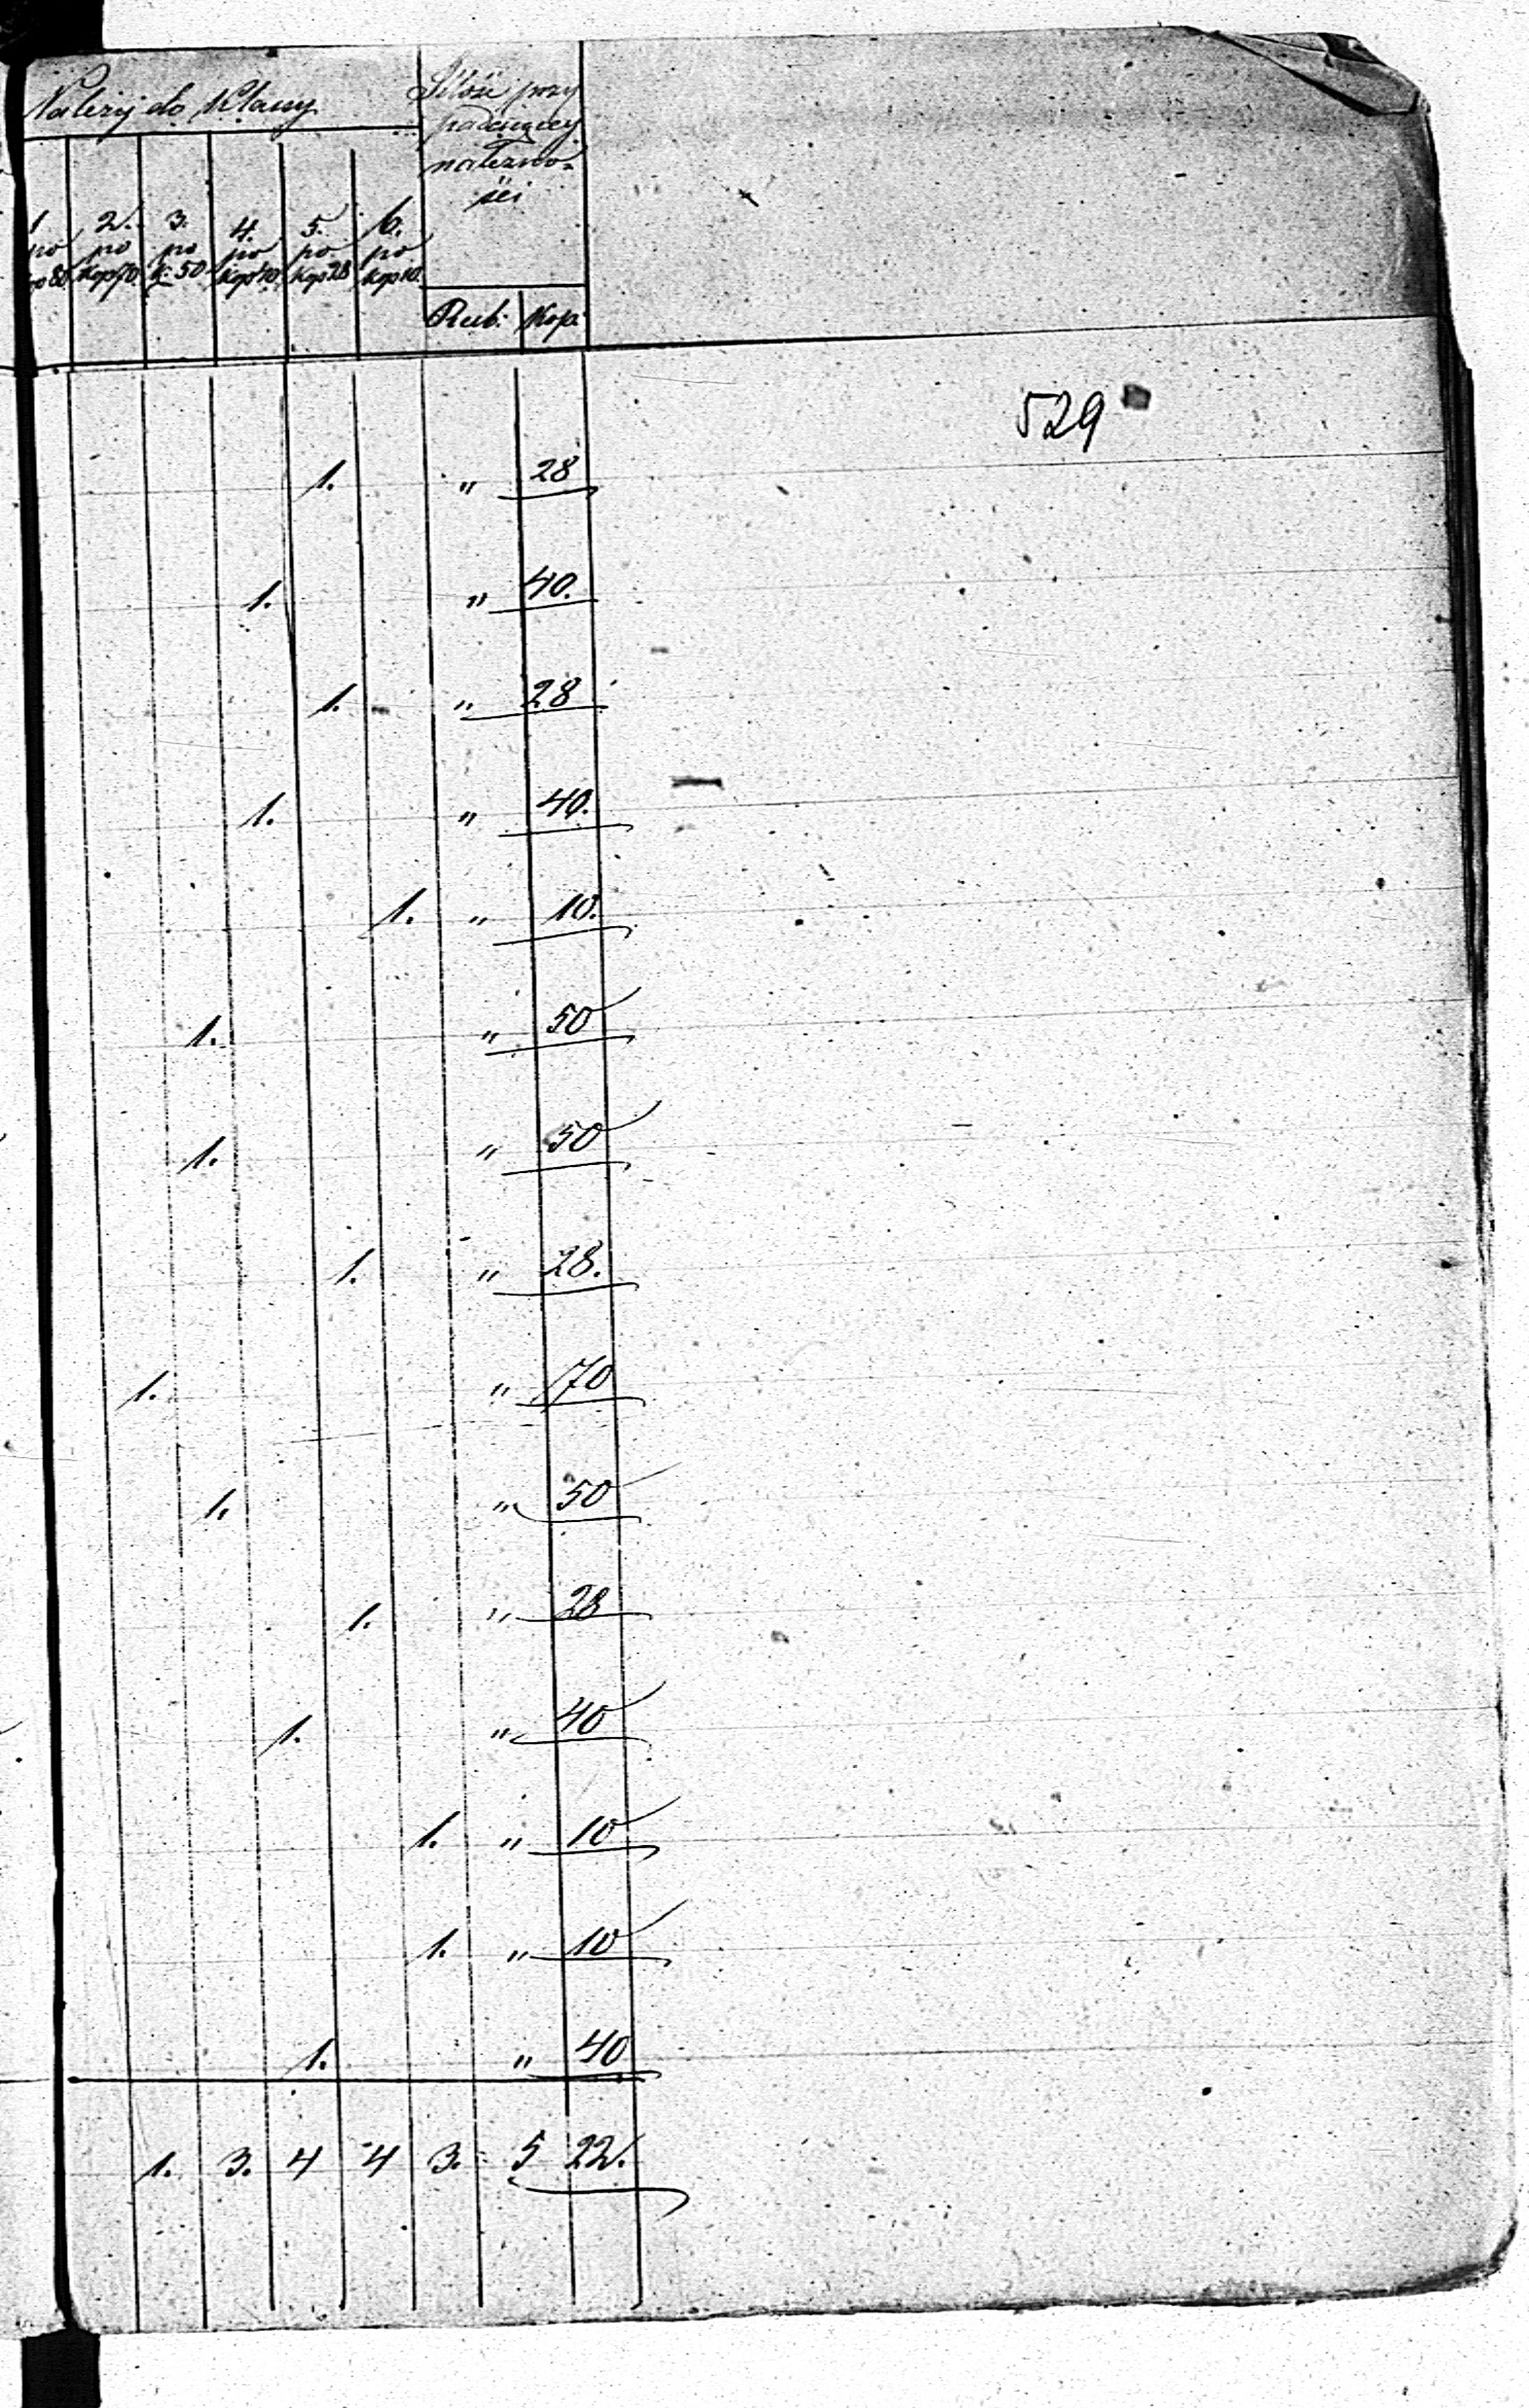 Należy do Klassy
Ilość przy
padaiącey
należno-
ści
1 2. 3. 4. 5. 6.
po po po po po po
kop 80 kop 70 k. 50 kop 40. kop 28 kop 10.
Rub: Kop:
529
1. " 28
1. " 40.
1. " 28
1. " 40.
1. " 10.
1. " 50
1. " 50
1. " 28.
1. " 70
1. " 50
1. " 28
1. " 40
1. " 10
1. " 10
1. " 40
1. 3. 4 4 3. 5 22.